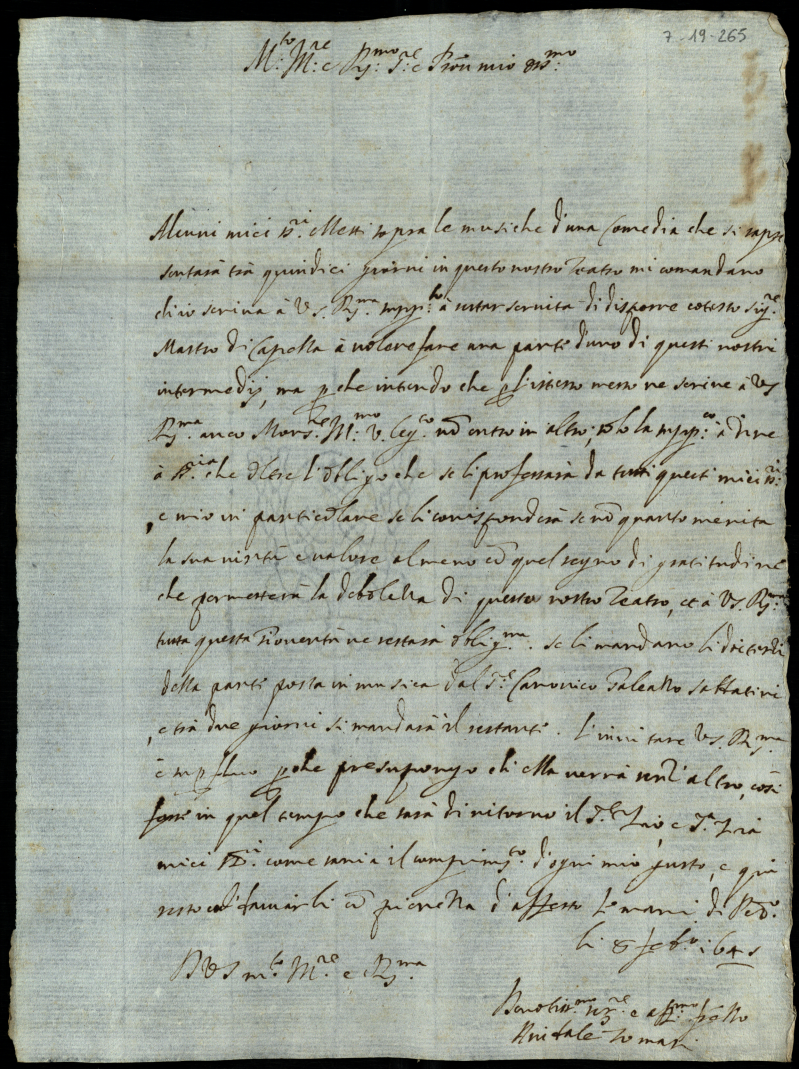 7-19-265
M.to Ill.re e R.mo S.re e Pron mio oss.mo
Alcuni miei SS.ri messi sopra le musiche d'una Comedia che si rapre
sentarà trà quindici giorni in questo nostro Teatro mi comandano
ch'io scriva à V.S. R.ma supp.la à restar servita di disporre cotesto Sig.re
Mastro di Capella à voler fare una parte d'uno di questi nostri
intermedij, ma p che intendo che p l'istesso messo ne scrive à VS
R.ma anco Mons.re Ill.mo V. Leg.to nõ entro in altro; solo la supp.co à dire
à che oltre l'obligo che se li professarà da tutti questi miei SS.ri
, e mio in particolare se li corrisponderà se nõ quanto merita
la sua virtù e valore al meno cõ quel segno di gratitudine
che permetterà la debolezza di questo nostro Teatro, et à V.S. R.ma
tutta questa Gioventù ne restarà oblig.ma. se li mandano li
della parte posta in musica dal S.r Canonico Galeazzo Sabbatini
, e trà due giorni si mandarà il restante. L'invitare V.S. R.ma
è sup.fluo p che presupongo ch'ella verrà senz'altro, così
fosse in quel tempo che sarà di ritorno il S.r Zio, e S.ra Zia
miei SS.ri come saria il compim.to d'ogni mio gusto, e qui
resto cõ baciarli cõ pienezza d'affetto le mani. di Pes.o
li 8 feb.o 1645
D V S m.to Ill.re e R.ma
Devotiss.mo ser.re e aff.mo